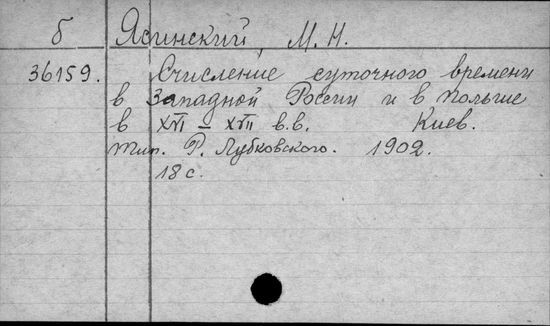 б Ясинский, М. Н.
36159. Счисление суточного времени
в Западной России и в Польше
в XVI – XVII в.в. Киев.
тип. Р. Лубковского. 1902.
18 с.